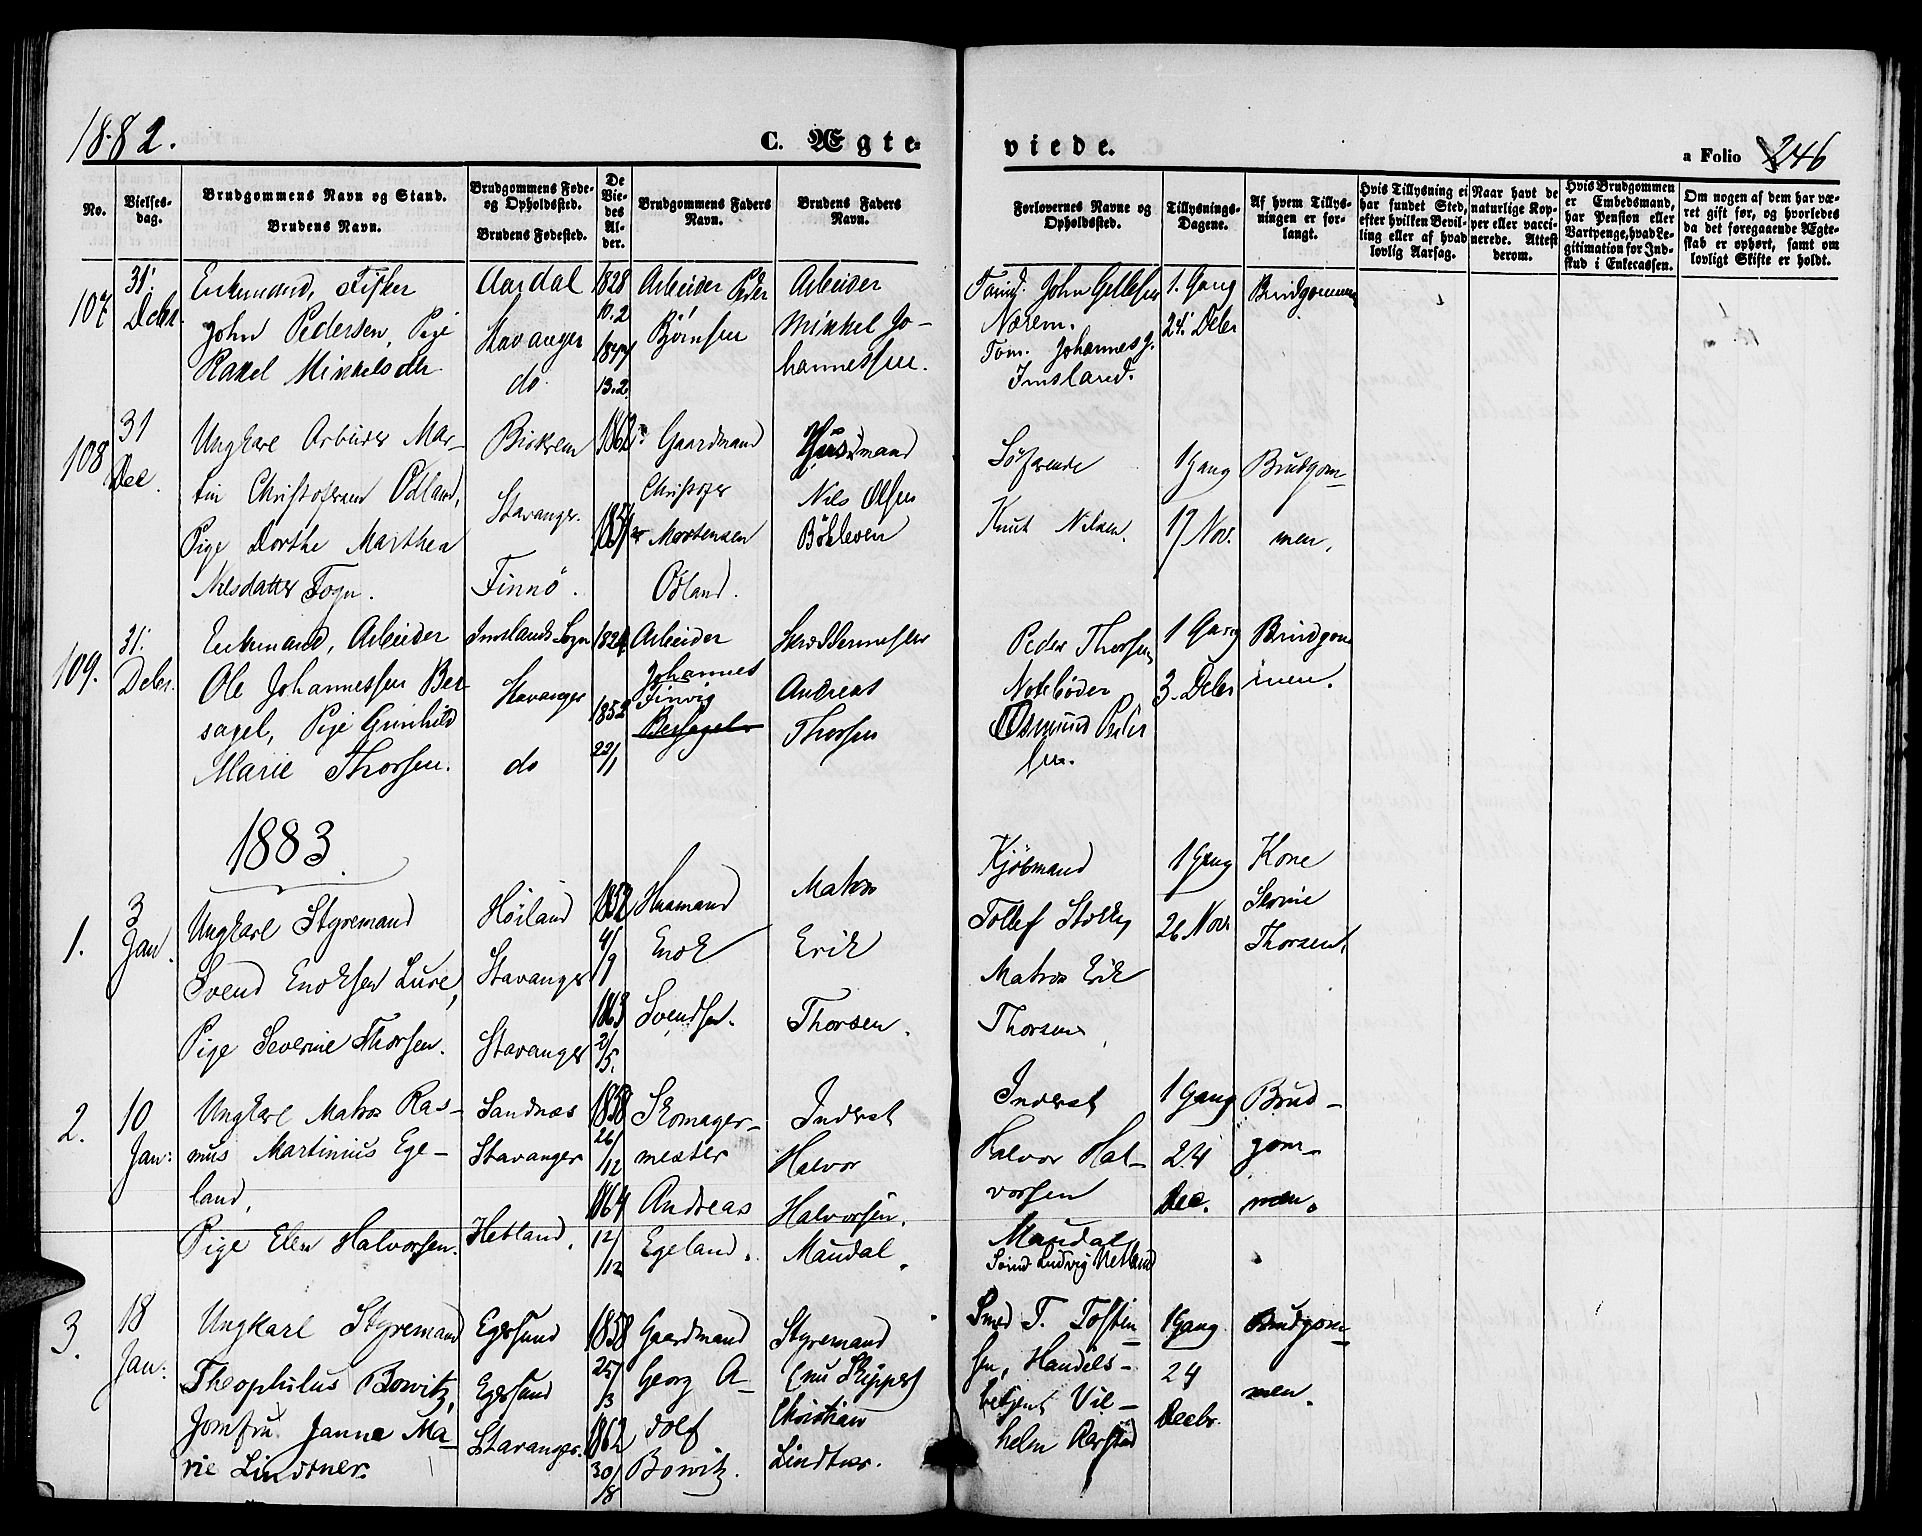 1882.
C. Ægte-
viede.
a Folio 246
No.
Vielses-
dag.
Brudgommens Navn og Stand.
Brudens Navn.
Brudgommens Føde-
og Opholdssted.
Brudens Fødested.
De
Vie-
des
Al-
der.
Brudgommens Faders
Navn.
Brudens Faders
Navn.
Forlovernes Navne og
Opholdssted.
Tillysnings-
Dagene.
Af hvem Tillys-
ningen er for-
langt.
Hvis Tillysning ei
har fundet Sted,
efter hvilken Bevil-
ling eller af hvad
lovlig Aarsag.
Naar havt de
naturlige Kop-
per eller vacci-
nerede. Attest
derom.
Hvis Brudgommen
er Embedsmand,
har Pension eller
Vartpenge, hvad Le-
gitimation for Ind-
skud i Enkecassen.
Om nogen af dem har væ-
ret gift før, og hvorledes
da det foregaaende Ægte-
skab er ophørt, samt om
lovligt Skifte er holdt.
107
31:
Debr.
Enkemand, Fisker
John Pedersen, Pige
Rakel Minkelsdtr
Aardal
Stavanger
do
1828
10.2
1844
13.2
Arbeider Peder
Bjørnsen
Arbeider
Minkel Jo-
hannessen.
John Gellesen
Nærem.
Tøm. Johannes J.
Imsland.
1. Gang
24: Debr
Brudgommen
108
31
Dec.
Ungkarl Arbeider Mar-
tin Christofersen Ødland,
Pige Dorthe Marthea
Nilsdatter Fogn.
Birkrem
Stavanger.
Finnø.
1862
1857
Gaardmand
Christofer
Mortensen
Ødland.
Husmand
Nils Olsen
Bøkleven
Søfarende
Knut Nilsen.
1 Gang
17 Nov.
Brudgom-
men.
109.
31:
Debr.
Enkemand, Arbeider
Ole Johannessen Ber-
sagel, Pige Gunhild
Marie Thorsen.
Imslands Sogn
Stavanger
do
1824
1852
22/1
Arbeider
Johannes
Finvig
Bersagel
Skræddermester
Andreas
Thorsen
Peder Thorsen
Notebøder
Osmund Peder
sen.
1 Gang
3. Debr
Brudgom
men.
1883.
1.
3
Jan.
Ungkarl Styremand
Svend Enoksen Lure,
Pige Severine Thorsen.
Höiland
Stavanger
Stavanger
1852
4/9
1863
2/5.
Husmand
Enok
Svendsen.
Matros
Erik
Thorsen.
Kjøbmand
Tollef Stolky
Matros Erik
Thorsen,
1 Gang
26 Nov.
Kone
Serine
Thorsen.
2.
10
Jan:
Ungkarl Matros Ras-
mus Martinius Ege-
land,
Pige Elen Halvorsen.
Sandnæs
Stavanger
Hetland.
1858
26/12
1864
12/12
Skomager-
mester
Andreas
Egeland.
Inderst
Halvor
Halvorsen.
Maudal.
Inderst
Halvor Hal-
vorsen
Maudal
Ludvig Netland
1 Gang
24
Dec.
Brud-
gom-
men.
3.
18
Jan:
Ungkarl Styremand
Theophilus Bowitz,
Jomfru Janna Ma-
rie Lindtner.
Egersund
Egersund
Stavanger.
1858
25/3
1862
30/8
Gaardmand
Georg A-
dolf
Bowitz.
Styremand
(nu Skipper)
Christian
Lindtner.
Smed T. Tosten-
sen, Handels-
betjent Vil-
helm Aarstad
1 Gang
24
Decbr.
Brudgom-
men.